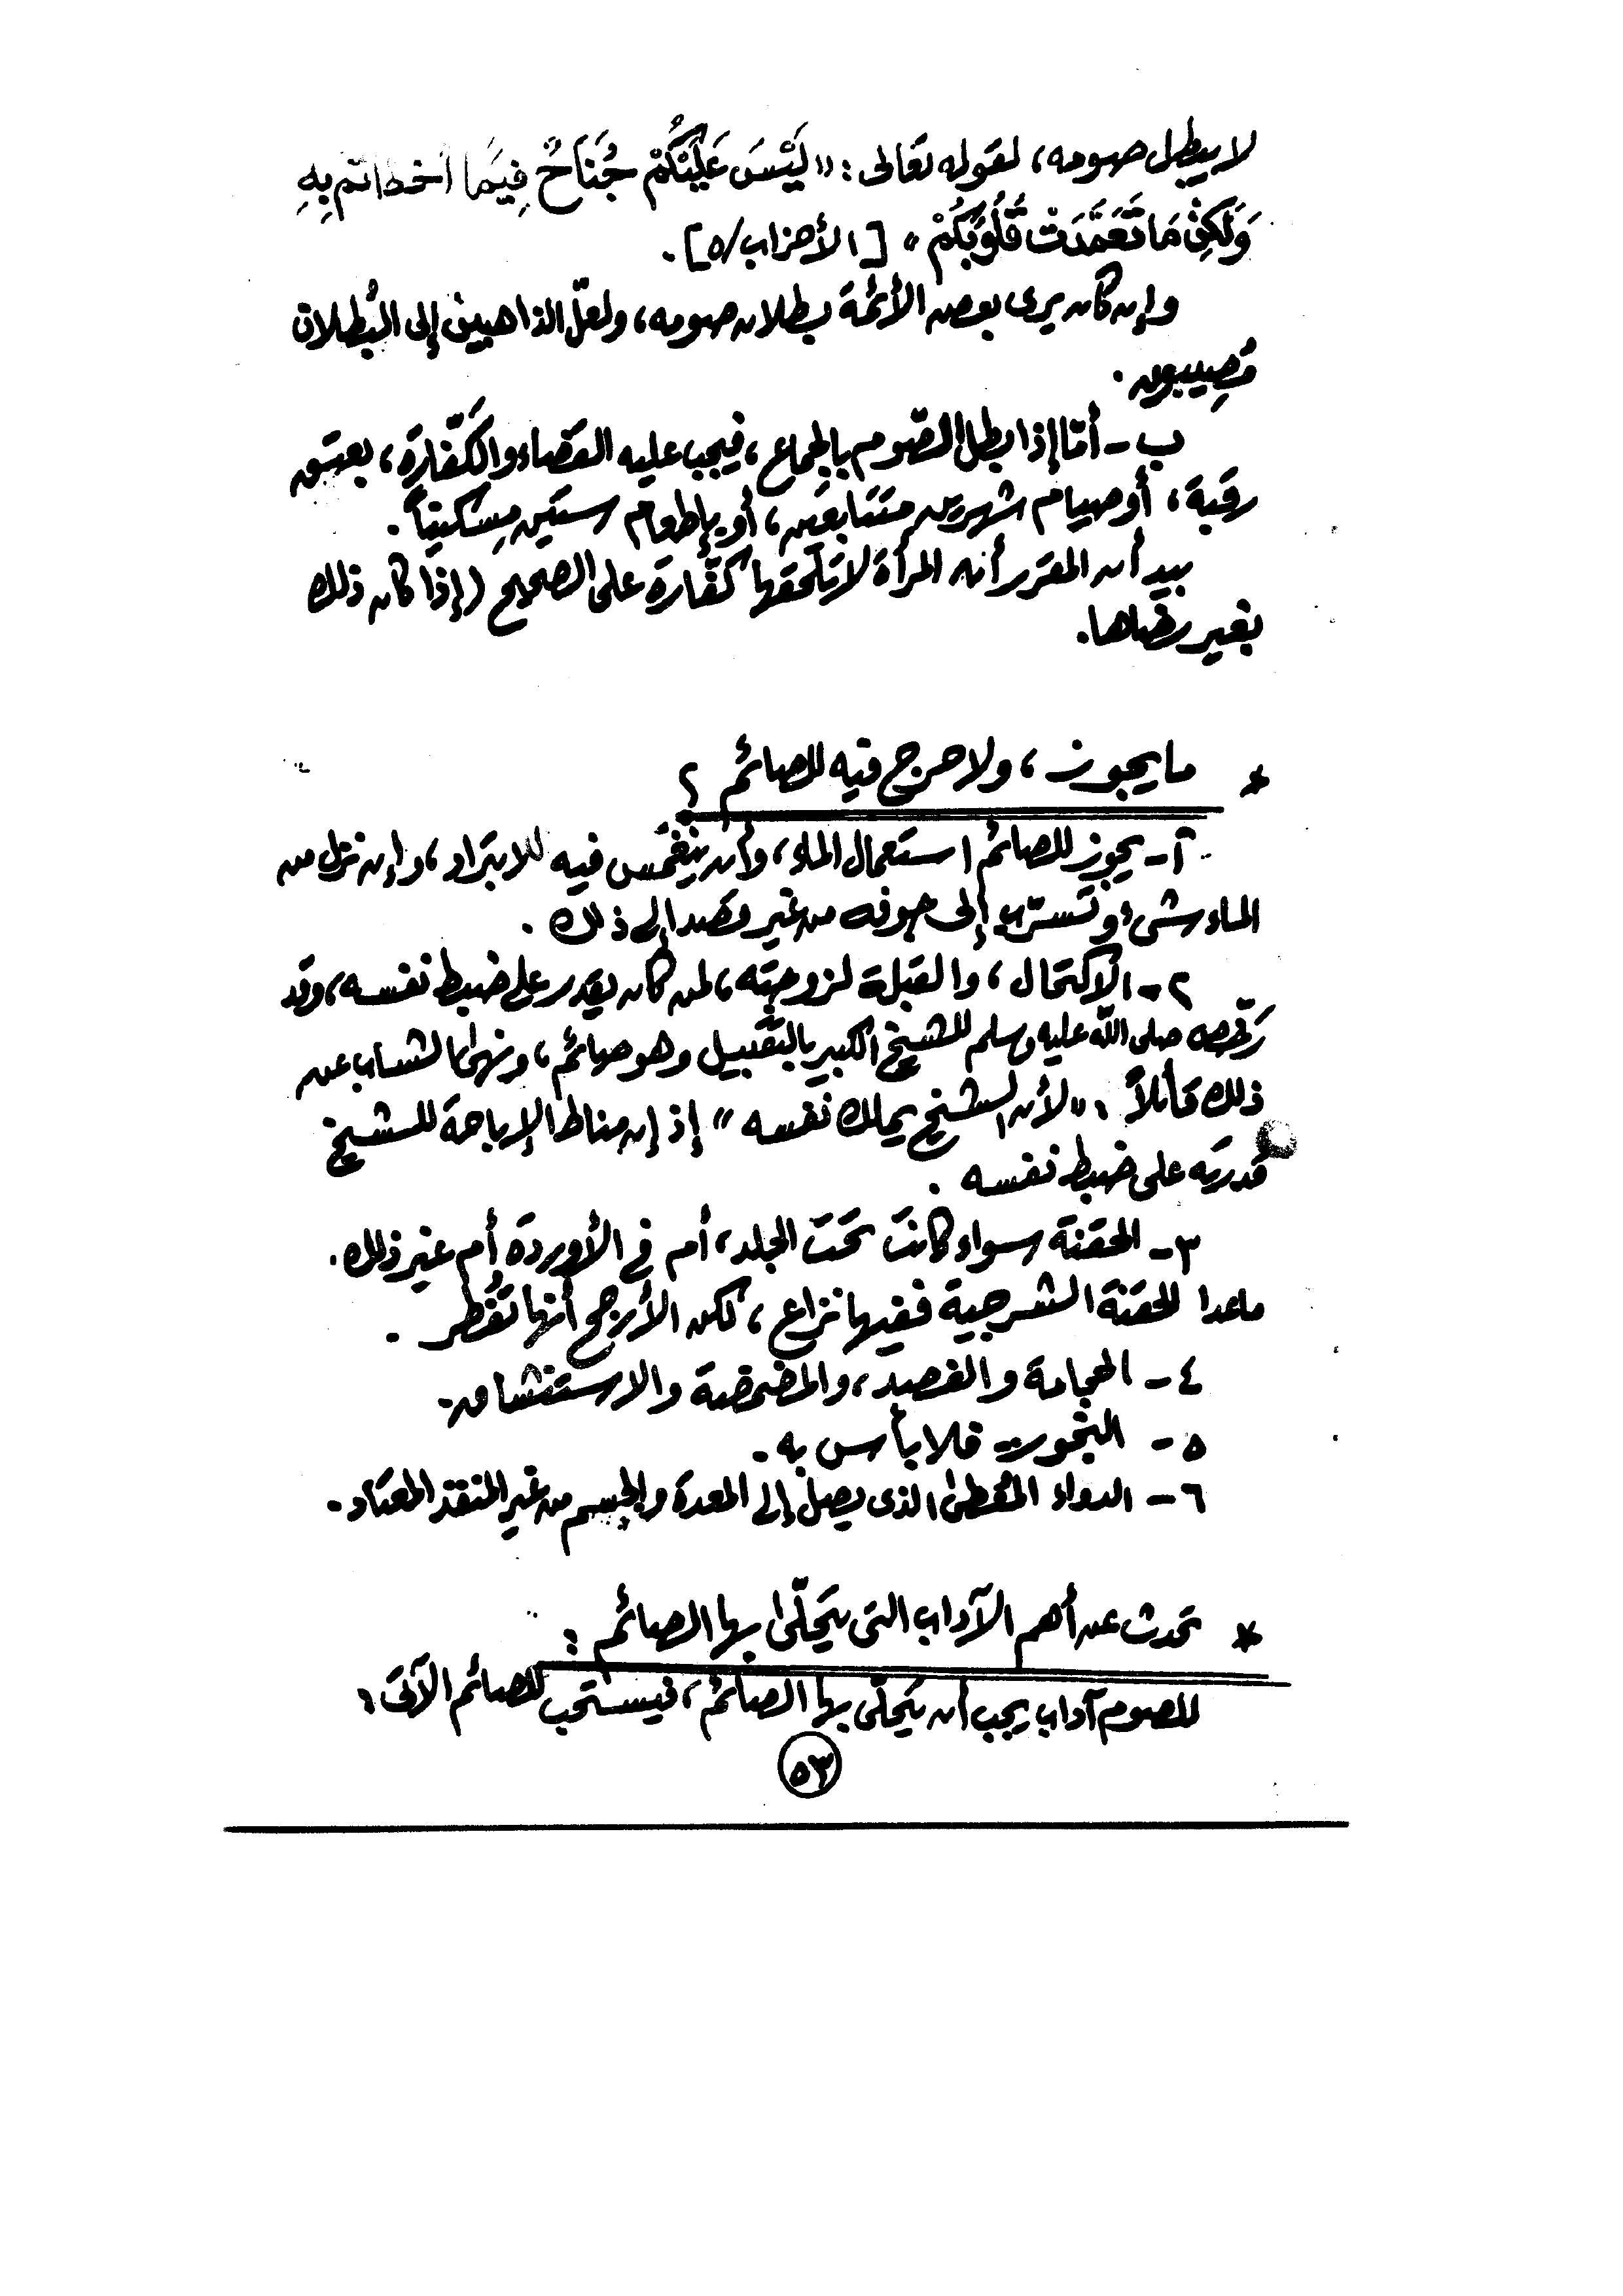 لا يبطل صومه، لقوله تعالى: «لَيْسَ عَلَيْكُمْ جُنَاحٌ فِيمَا أخطأتم بِهِ
وَلَكِنْ مَا تَعَمَّدَتْ قُلُوبُكُمْ» [الأحزاب/٥].
وإن كان يرى بعض الأئمة بطلان صومه، ولعلّ الذاهبين إلى البُطلان
مُصِيبون.
ب - أمّا إذا بطل الصّوم بالجماع، فيجب عليه القضاء والكَفّارة، بعتق
رقبة، أو صيام شهرين متتابعَين، أو بإطعام ستين مِسكيناً.
بيد أن المقرر أن المرأة لا تلحقها كفّارة على الصحيح (إذا كان ذلك
بغير رضاها.
* ما يجوز، ولا حرج فيه للصائم ؟
١- يجوز للصائم استعمال الماء، وأن ينغمس فيه للابتراد، وإن نزل من
الماء شئ إلى جوفه من غير قصد إلى ذلك.
٢- الاكتحال، والقبلة لزوجته، لمن كان يقدر على ضبط نفسه، وقد
رَخّص صلى الله عليه وسلم للشيخ الكبير بالتّقبيل وهو صائم، ونهى الشاب عن
ذلك قائلاً: «لأن الشيخ يملك نفسه» إذ إن مناط الإباحة للشيخ
قدرته على ضبط نفسه.
٣- الحقنة سواء كانت تحت الجلد، أم في الأوردة أم غير ذلك.
ماعدا الحقنة الشرجية ففيها نزاع، لكن الأرجح أنها تُفْطر.
٤- الحجامة والفصد، والمضمضة والاستنشاق.
٥- البخور فلا بأس به.
٦- الدواء الذى يصل إلى المعدة والجسم من غير المنفذ المعتاد.
* تحدث عن أهم الآداب التى يتحلّى بها الصائم:
للصوم آداب يجب أن يتحلّى بها الصائم، فيستحب للصائم الآتى:
٥٣